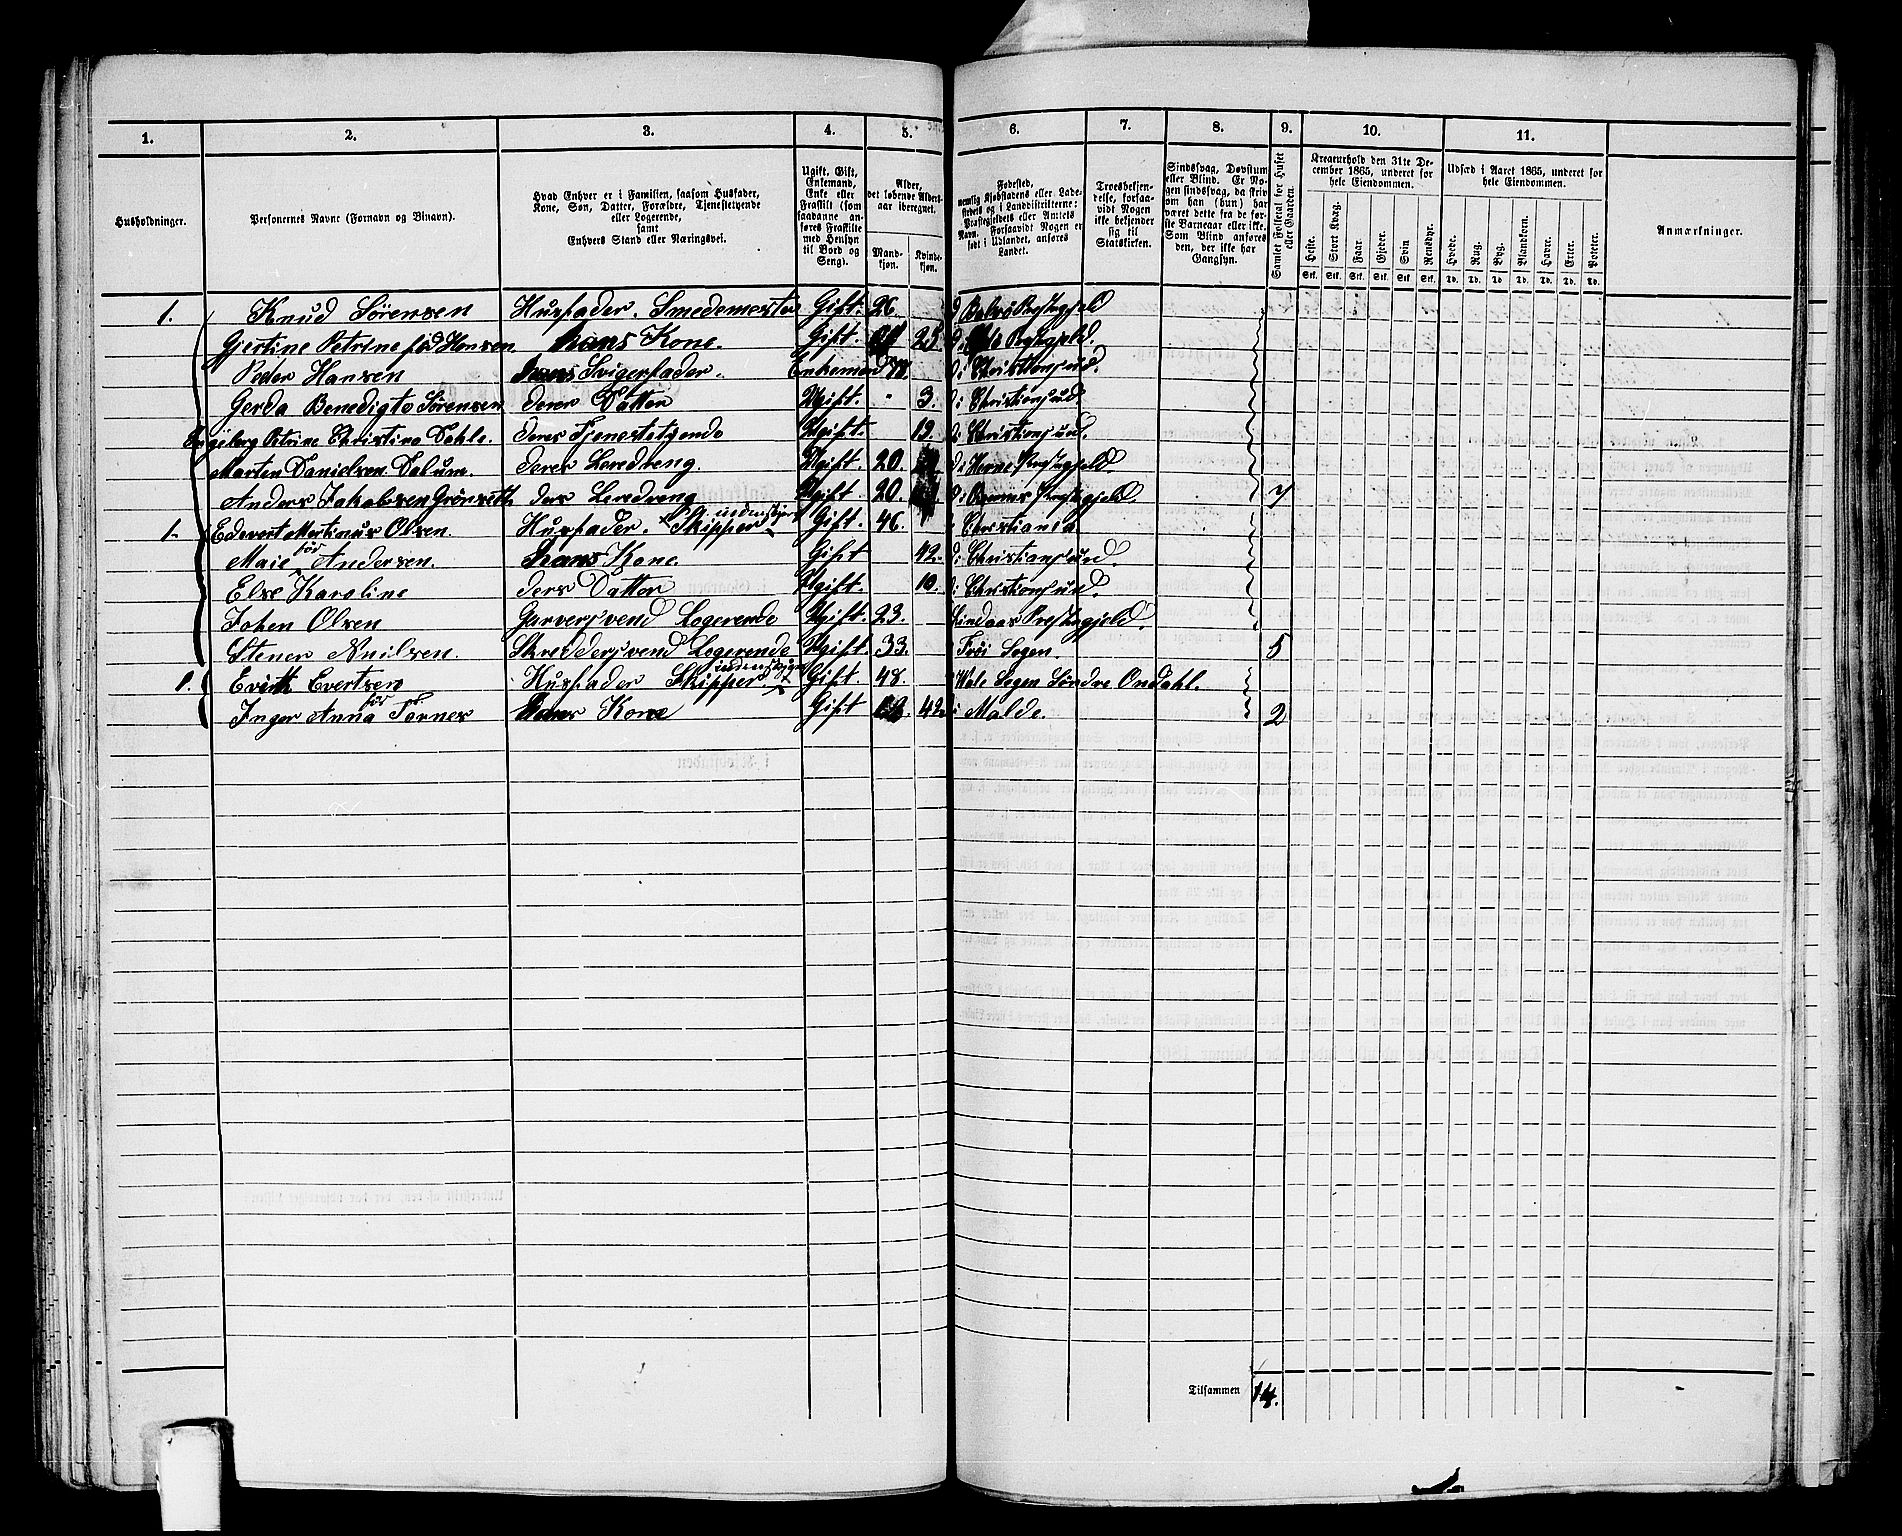 1. 2. 3. 4. 5. 6. 7. 8. 9. 10. 11.
Husholdninger.
Personernes Navne (Fornavn og Binavn).
Hvad Enhver er i Familien, saasom Husfader,
Kone, Søn, Datter, Forældre, Tjenestetyende
eller Logerende,
samt
Enhvers Stand eller Næringsvei.
Ugift, Gift,
Enkemand,
Enke eller
Fraskilt (som
saadanne an-
føres Fraskilte
med Hensyn
til Bord og
Seng).
Alder,
det løbende Alders-
aar iberegnet.
Mand-
kjøn.
Kvinde-
kjøn.
Fødested,
nemlig Kjøbstadens eller Lade-
stedets og i Landdistrikterne:
Præstegjeldets eller Amtets
Navn. Forsaavidt Nogen er
født i Udlandet, anføres
Landet.
Troesbekjen-
delse, forsaa-
vidt Nogen
ikke bekjender
sig til
Statskirken.
Sindssvag, Døvstum
eller Blind. Er No-
gen sindssvag, da skriv
om han (hun) har
været dette fra de før-
ste Barneaar eller ikke.
Som Blind anføres
den, der ikke har
Gangsyn.
Samlet Folketal for Huset
eller Gaarden.
Kreaturhold den 31te De-
cember 1865, underet for
hele Eiendommen.
Heste. Stort Kvæg. Faar. Gjeder. Svin Rensdyr.
Stk. Stk. Stk. Stk. Stk. Stk.
Udsæd i Aaret 1865, underet for
hele Eiendommen.
Hvede. Rug. Byg. Blandkorn. Havre. Erter. Poteter.
Td. Td. Td Td. Td. Td. Td.
Anmærkninger.
1. Knud Sørensen Husfader. Smedemester Gift. 26. Præstegjeld
Gjertine Petrine fød Hansen. hans Kone. Gift. 23. Præstegjeld.
Peder Hansen hans Svigerfader. Enkemand Christiansund.
Gerda Benedigte Sørensen deres Datter Ugift. " 3. Christiansund
Engeberg Petrine Christina Dahle. deres Tjenestetyende Ugift. 19. Christiansund.
Marten Danielsen Dalum. deres Leredreng Ugift. 20. Hevne Præstegjeld
Anders Jakobsen Grønseth ders Leredreng Ugift 20. Præstegjeld. 7
1. Edevert Martinus Olsen. Husfader. Skipper indenskjers Gift. 46. Christiania
Maie før Andersen. hans Kone. Gift 42. Christiansund.
Else Karoline ders Datter Ugift. 10. Christiansund.
Johen Olsen Garversvend Logerende Ugift. 23. Lindaas Prestegjeld.
Stener Nuilsen. Skreddersvend Logerende Ugift. 33. Frøi Sogen. 5
1. Evertsen Husfader Skipper indenskjers Gift. 48. Sogen Søndre Ondahl.
Inger Anna før Torner hans Kone Gift 42. Molde. 2
Tilsammen 14.